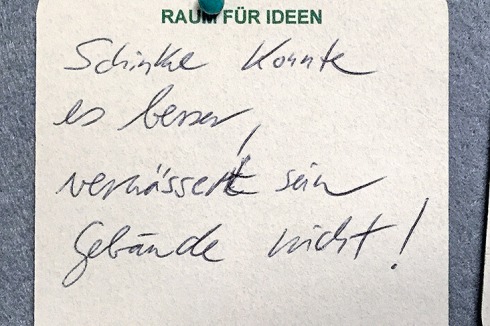 RAUM FÜR IDEEN
Schinkel konnte
es besser,
verwässert sein
Gebäude nicht!